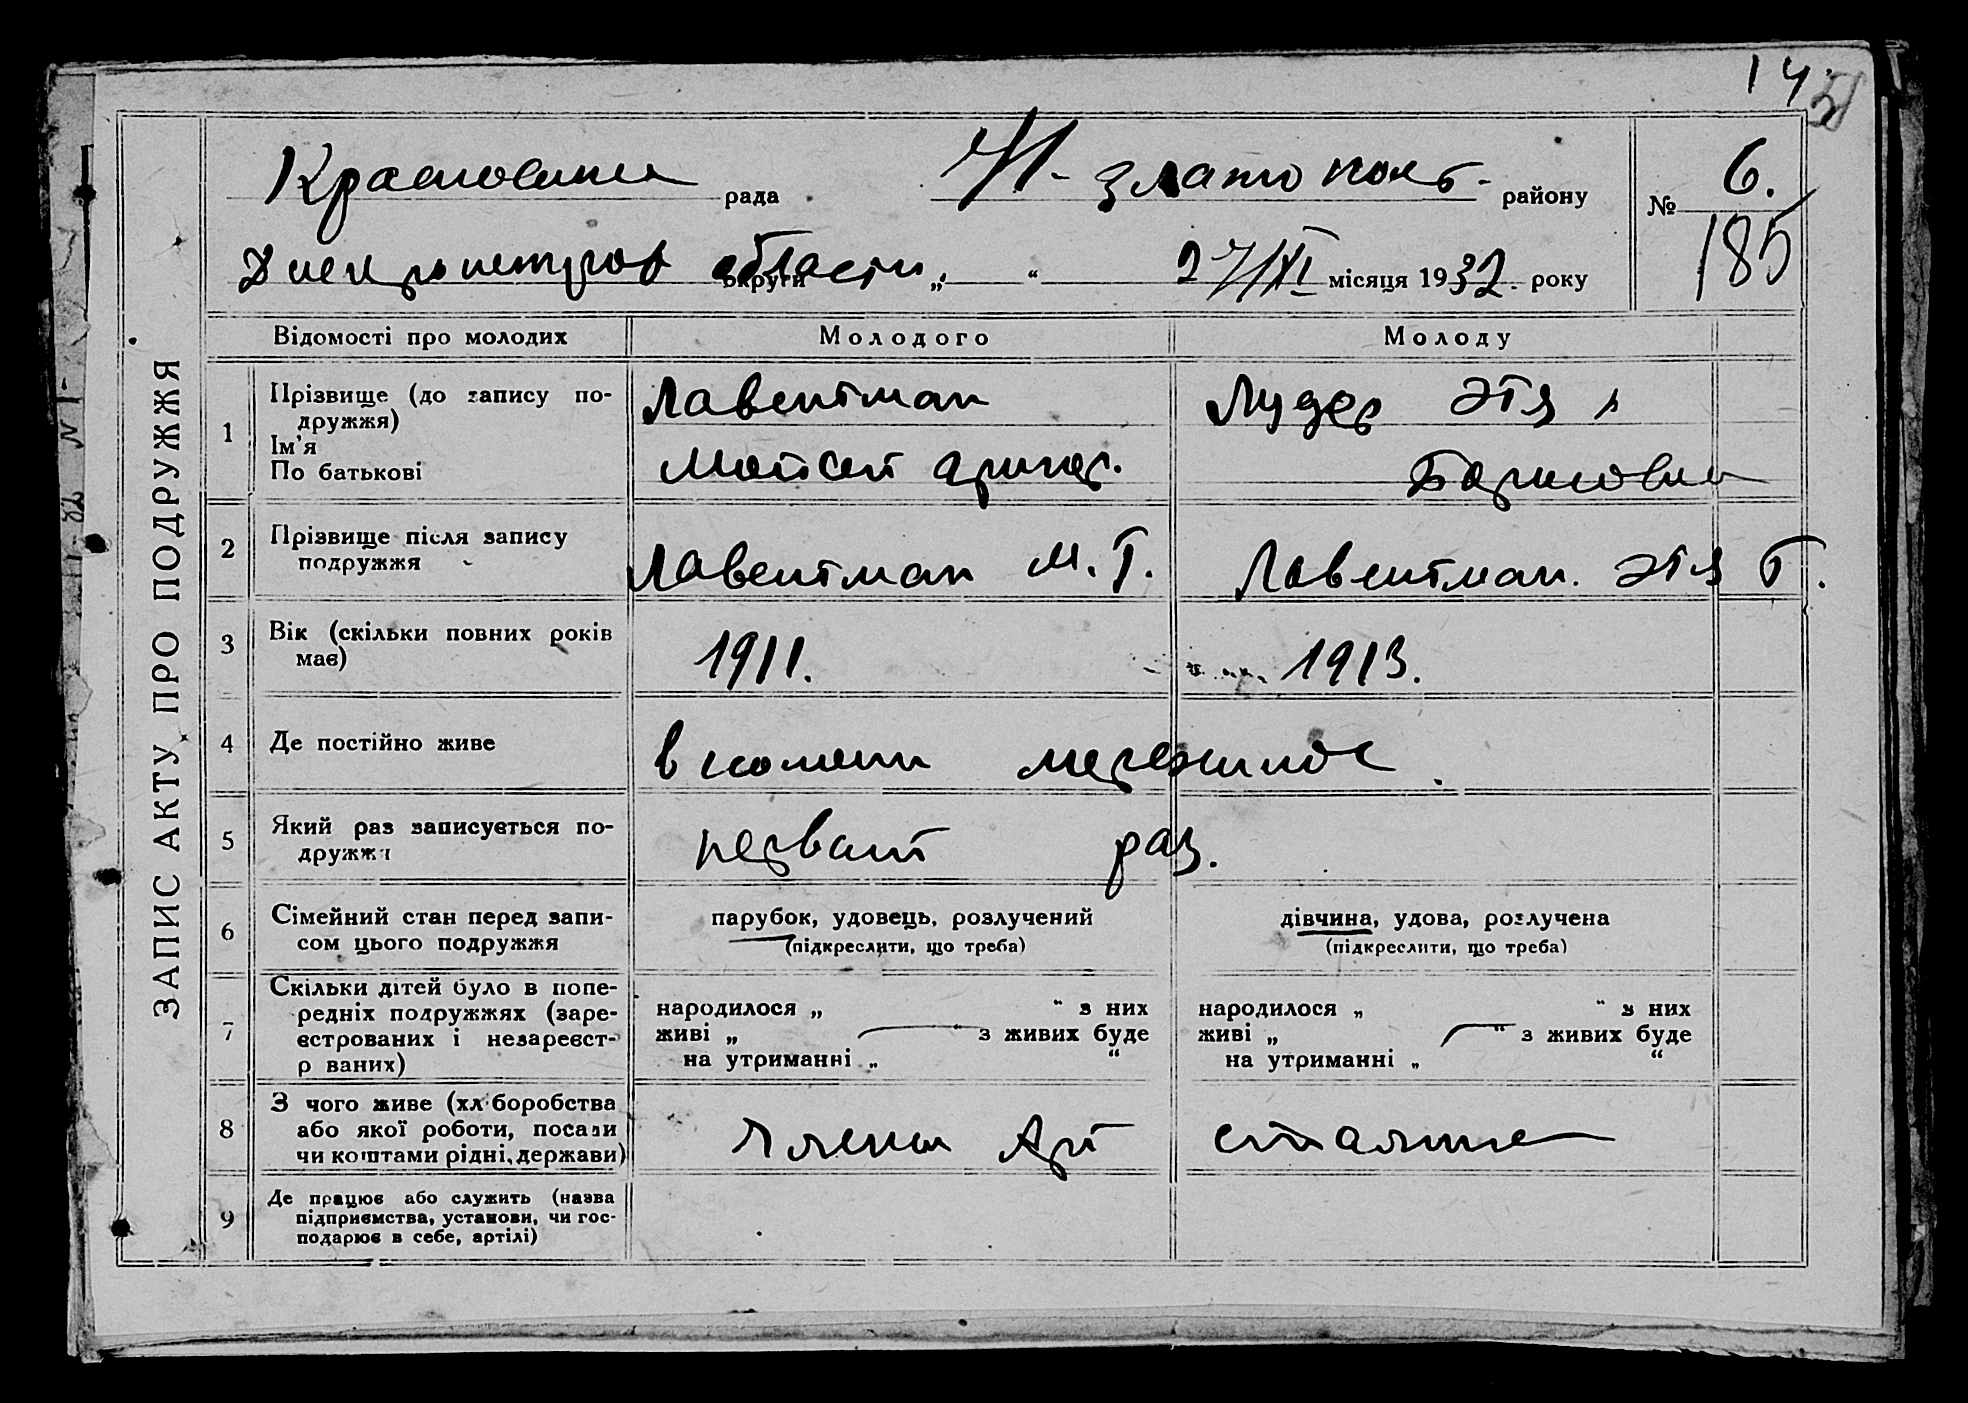 14
ЗАПИС АКТУ ПРО ПОДРУЖЖЯ
рада злато поль- району № 6.
185
області округи „ “ 27/XI місяця 1932. року
Відомості про молодих Молодого Молоду
1 Прізвище (до запису по-
дружжя)
Ім'я
По батькові
Лавентман Лудер Этя
Мойсей Борисовна
2 Прізвище після запису
подружжя
Лавентман М. Г. Лавентман. Этя Б.
3 Вік (скільки повних років
має)
1911. 1913.
4 Де постійно живе
5 Який раз записується по-
дружжя
первый раз.
6 Сімейний стан перед запи-
сом цього подружжя
парубок, удовець, розлучений
(підкреслити, що треба)
дівчина, удова, розлучена
(підкреслити, що треба)
7 Скільки дітей було в попе-
редніх подружжях (заре-
єстрованих і незареєст-
р ваних)
народилося „ “ з них
живі „ “ з живих буде
на утриманні „ “
народилося „ “ з них
живі „ “ з живих буде
на утриманні „ “
8 З чого живе (хл боробства
або якої роботи, посади
чи коштами рідні, держави)
члены Арт
9 Де працює або служить (назва
підприємства, установи, чи гос-
подарює в себе, артілі)